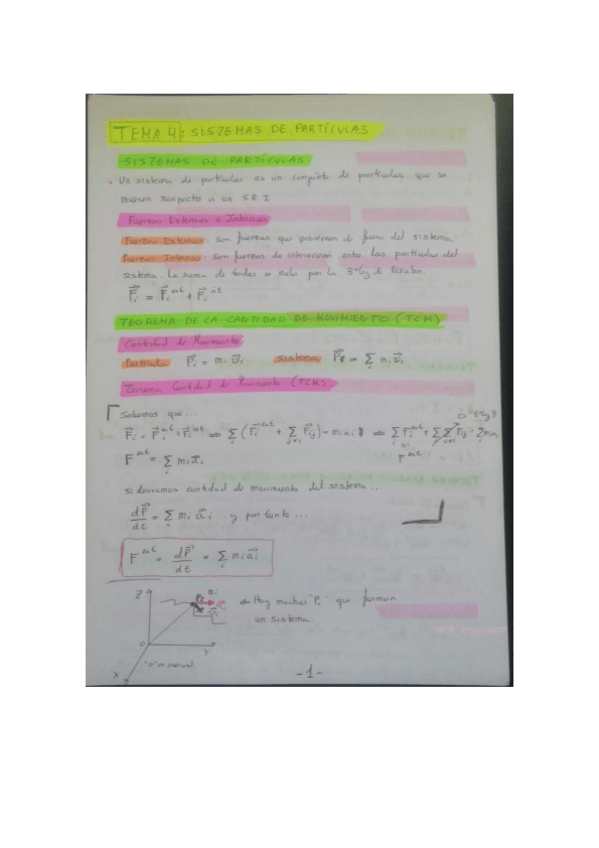 TEMA 4: SISTEMAS DE PARTÍCULAS
SISTEMAS DE PARTÍCULAS
• Un sistema de partículas es un conjunto de partículas que se
mueven respecto a un S.R.I
Fuerzas Externas e Internas
Fuerzas Externas: son fuerzas que provienen de fuera del sistema
Fuerzas Internas: son fuerzas de interacción entre las partículas del
sistema. La suma de todas es nula por la 3ª ley de Newton.
F⃗i = F⃗i^ext + F⃗i^int
TEOREMA DE LA CANTIDAD DE MOVIMIENTO (TCM)
Cantidad de Movimiento
Partícula P⃗i = mi v⃗i Sistema P⃗ = Σi mi v⃗i
Teorema Cantidad de Movimiento (TCM)
Sabemos que...
F⃗i = F⃗i^ext + F⃗i^int ⇒ Σi (F⃗i^ext + Σj≠i F⃗ij) = mi ai ⇒ Σi F⃗i^ext + ΣΣ F⃗ij = Σ mi ai
0 3ª ley
F^ext = Σi mi a⃗i F^ext
si derivamos cantidad de movimiento del sistema...
dP⃗/dt = Σi mi a⃗i y por tanto...
F^ext = dP⃗/dt = Σi mi a⃗i
Z Pi
← Hay muchas "Pi" que forman
un sistema.
O Y
X "O" en inercial
-1-